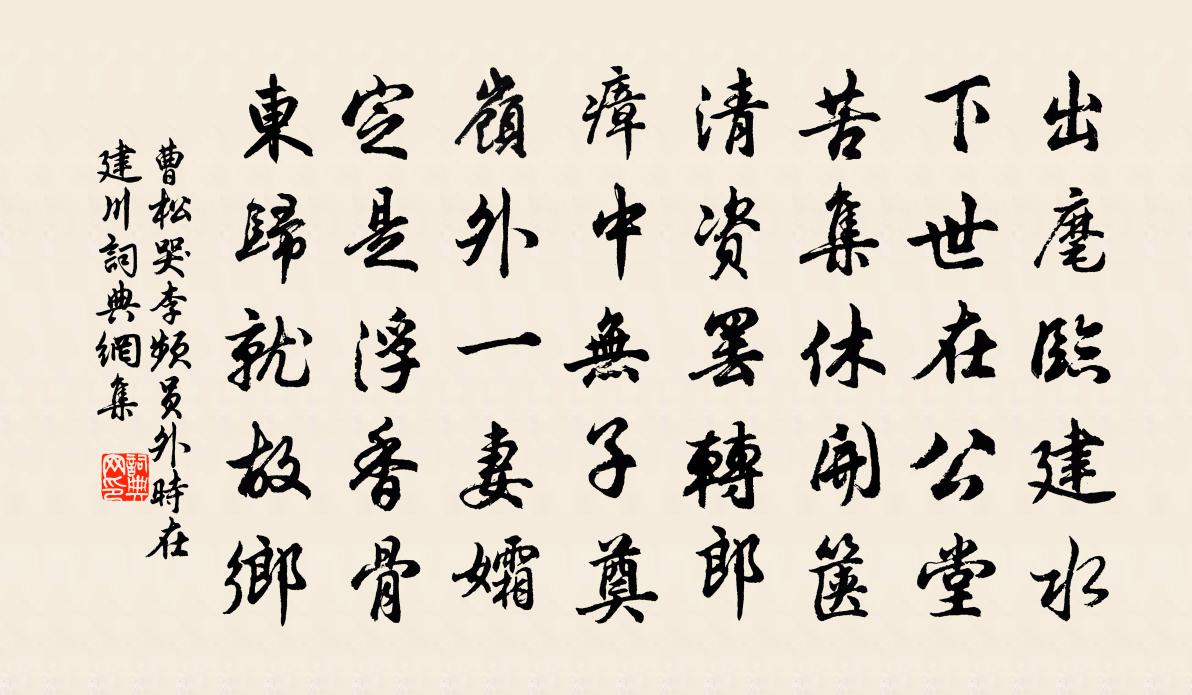 出麾臨建水
下世在公堂
苦集休開篋
清資罷轉郎
瘴中無子奠
嶺外一妻孀
定是浮香骨
東歸就故鄉
曹松哭李頻員外時在
建川詞典網集
詞典
網印